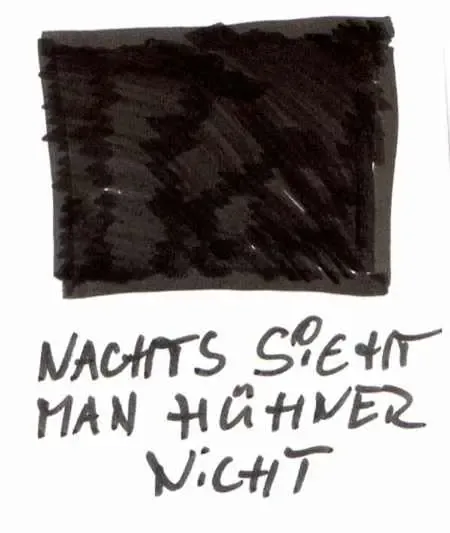 NACHTS SiEHT
MAN HÜHNER
NiCHT